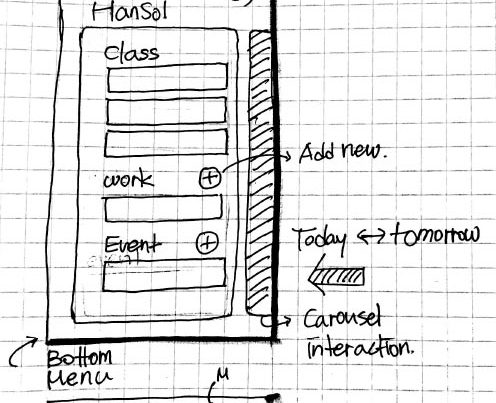 HanSol
Class
work
Add new.
Event
Today ↔ tomorrow
Carousel
interaction.
Bottom
Menu